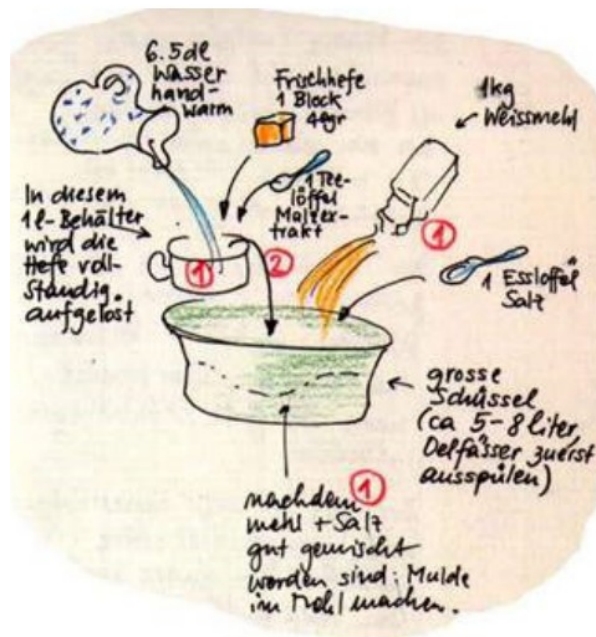 6.5dl
Wasser
hand-
warm
Frischhefe
1 Block
42gr
1kg
Weissmehl
1 Tee-
löffel
Malzex-
trakt
In diesem
1l-Behälter
wird die
Hefe voll-
ständig
aufgelöst
1
2
1
1 Esslöffel
Salz
grosse
Schüssel
(ca 5-8 liter,
Oelfässer zuerst
ausspülen)
1
nachdem
mehl + Salz
gut gemischt
worden sind: Mulde
im Mehl machen.